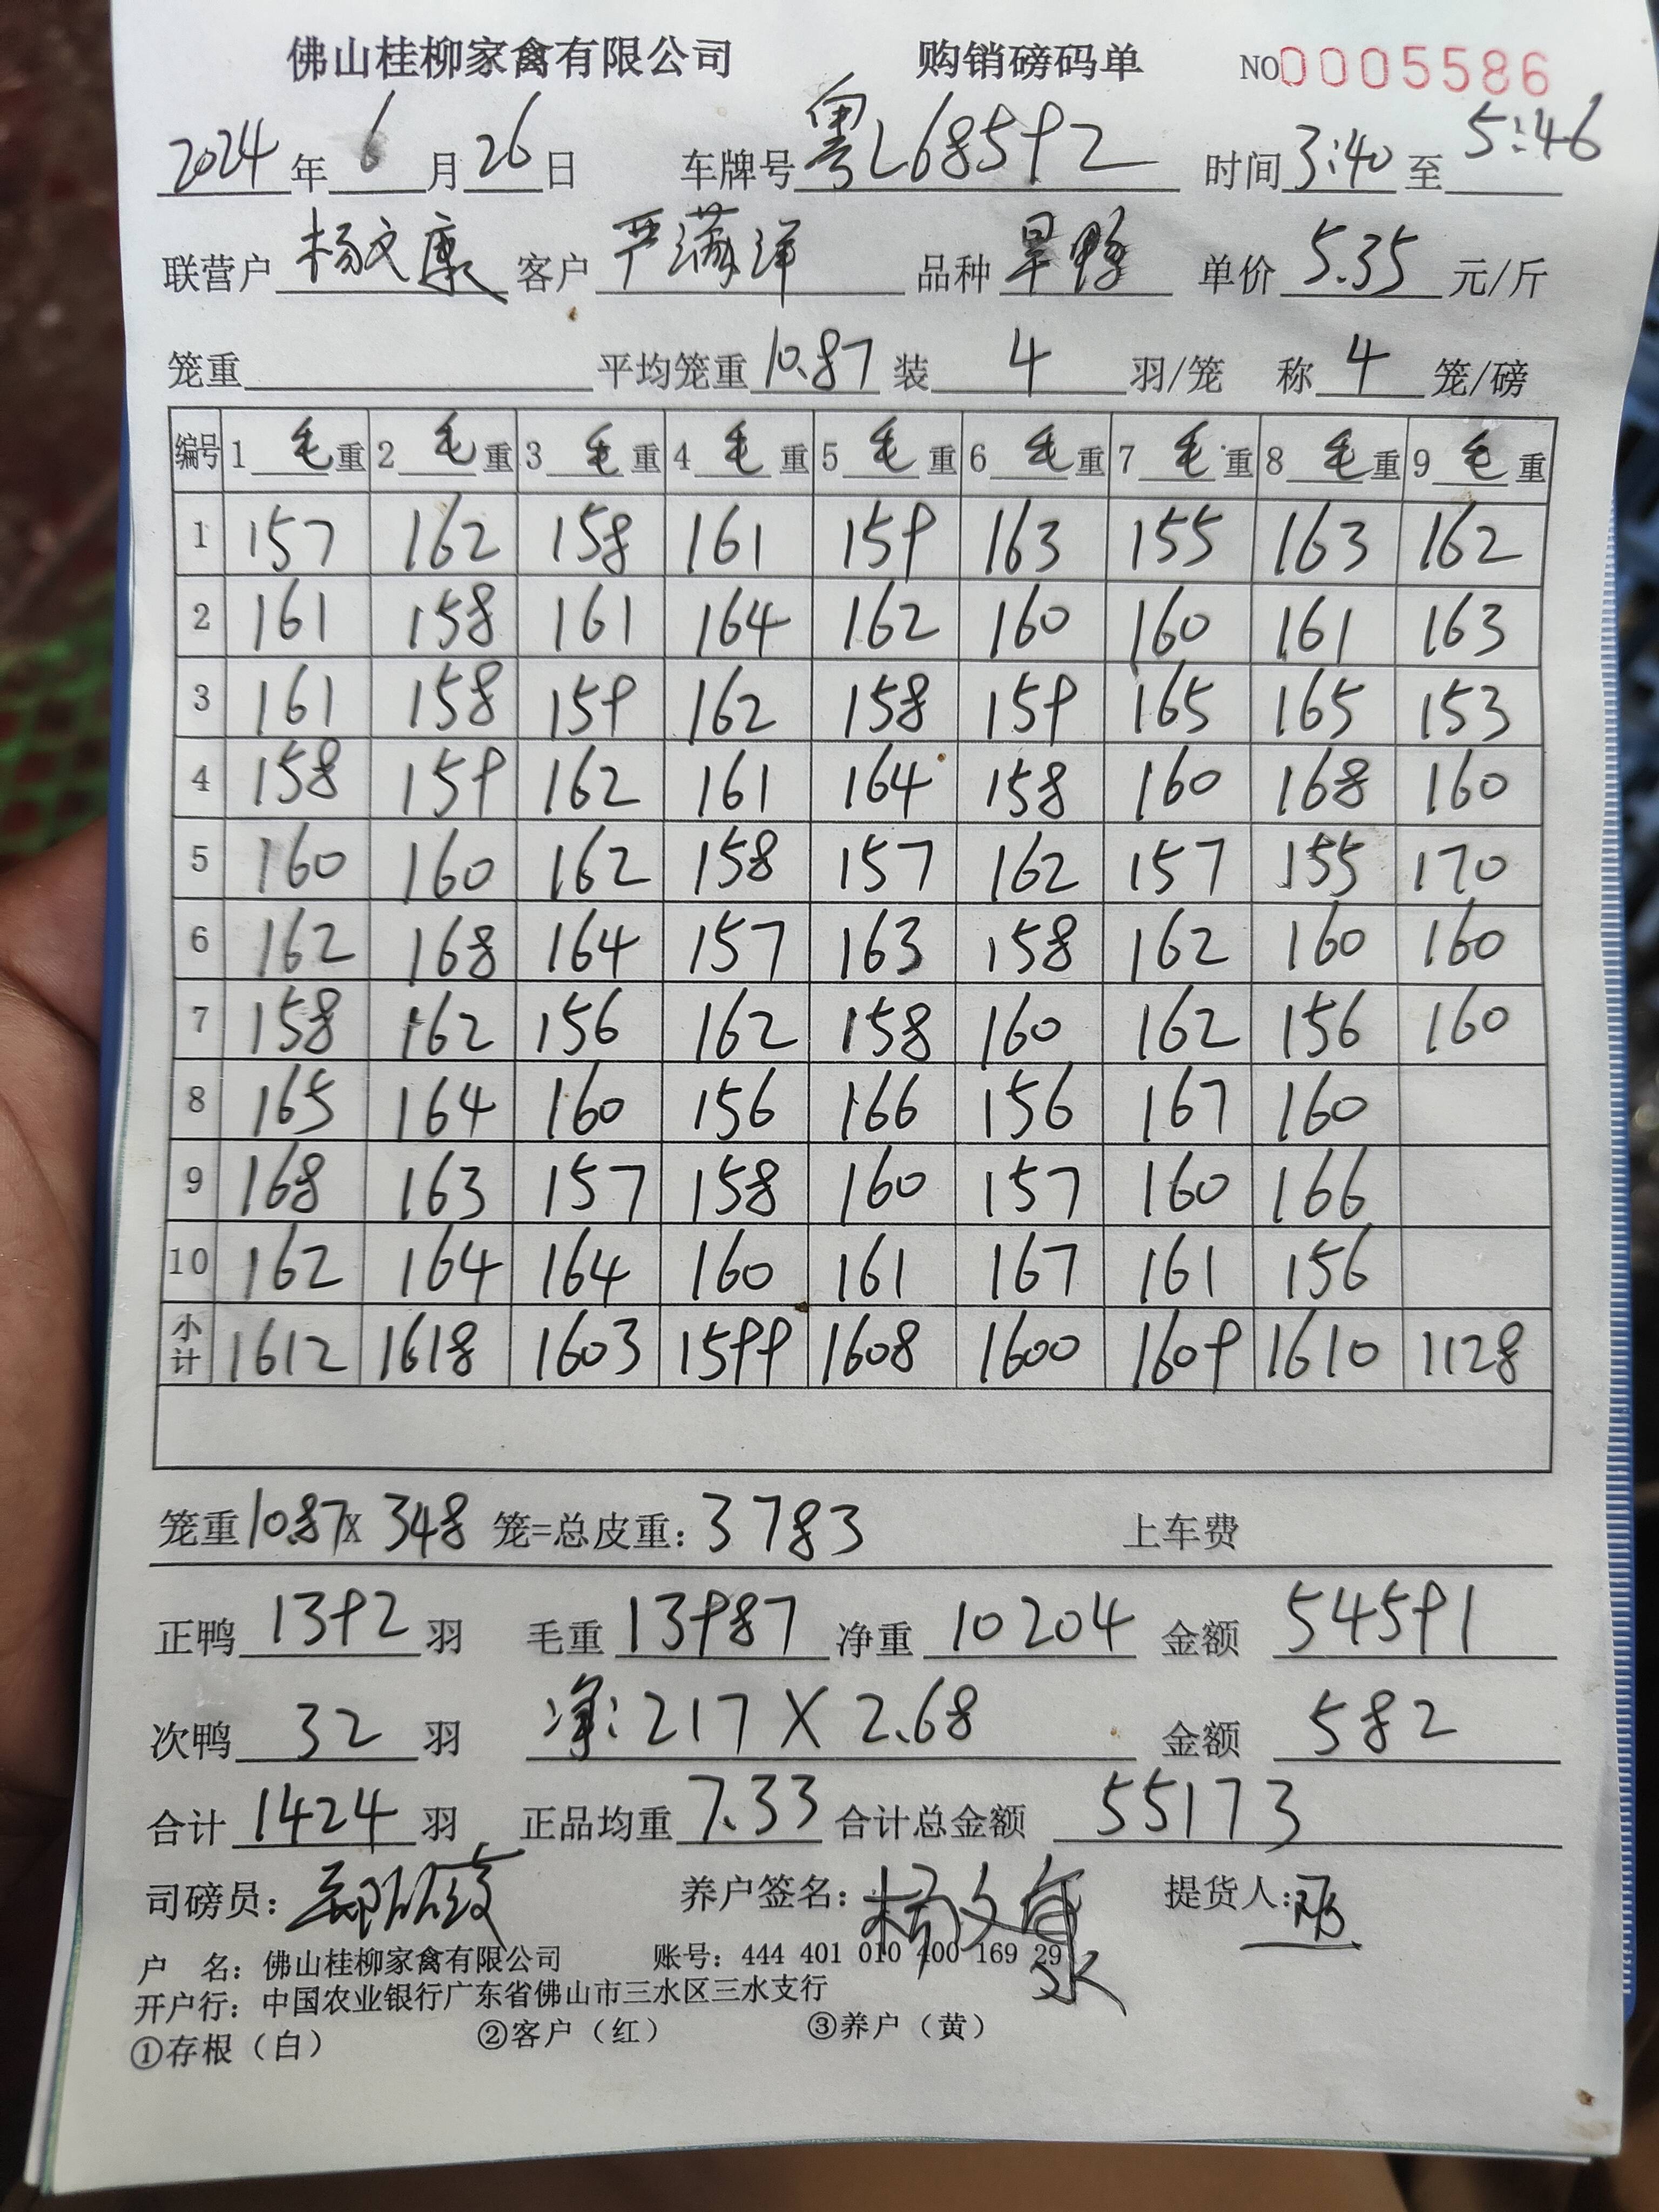 佛山桂柳家禽有限公司 购销磅码单 NO 0005586
2024年 6 月 26 日 车牌号 粤L68592 时间 3:40 至 5:46
联营户 杨文康 客户 严满洋 品种 旱鸭 单价 5.35 元/斤
笼重 平均笼重 10.87 装 4 羽/笼 称 4 笼/磅
编号 1 毛重 2 毛重 3 毛重 4 毛重 5 毛重 6 毛重 7 毛重 8 毛重 9 毛重
1 157 162 158 161 159 163 155 163 162
2 161 158 161 164 162 160 160 161 163
3 161 158 159 162 158 159 165 165 153
4 158 159 162 161 164 158 160 168 160
5 160 160 162 158 157 162 157 155 170
6 162 168 164 157 163 158 162 160 160
7 158 162 156 162 158 160 162 156 160
8 165 164 160 156 166 156 167 160
9 168 163 157 158 160 157 160 166
10 162 164 164 160 161 167 161 156
小计 1612 1618 1603 1599 1608 1600 1609 1610 1128
笼重 10.87 X 348 笼=总皮重: 3783 上车费
正鸭 1392 羽 毛重 13987 净重 10204 金额 54591
次鸭 32 羽 净: 217 X 2.68 金额 582
合计 1424 羽 正品均重 7.33 合计总金额 55173
司磅员: 养户签名: 杨文康 提货人:
户 名: 佛山桂柳家禽有限公司 账号: 444 401 010 400 169 29
开户行: 中国农业银行广东省佛山市三水区三水支行
①存根（白） ②客户（红） ③养户（黄）